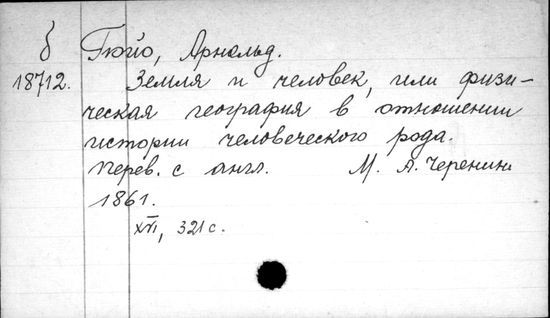 б Гюйо, Арнольд.
18712. Земля и человек, или физи-
ческая география в отношении
истории человеческого рода.
Перев. с англ. М. А. Черенин
1861.
XVI, 321 с.